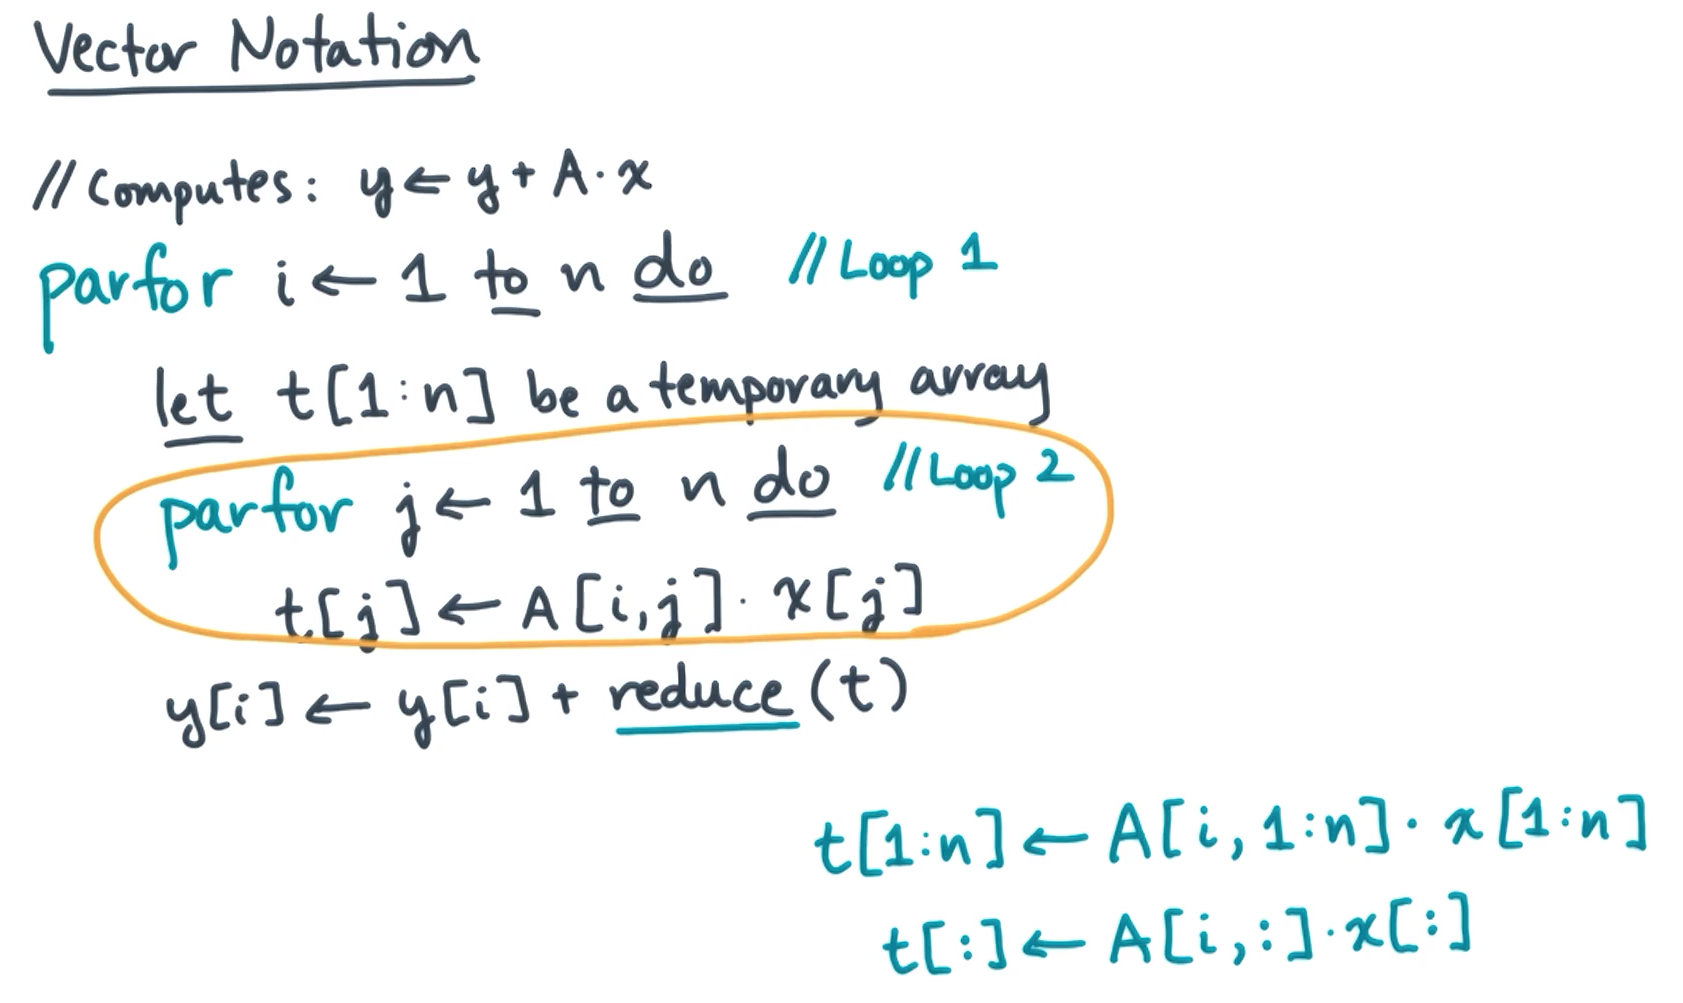 Vector Notation
// Computes: y ← y + A · x
parfor i ← 1 to n do // Loop 1
let t[1:n] be a temporary array
parfor j ← 1 to n do // Loop 2
t[j] ← A[i,j] · x[j]
y[i] ← y[i] + reduce(t)
t[1:n] ← A[i, 1:n] · x[1:n]
t[:] ← A[i,:] · x[:]